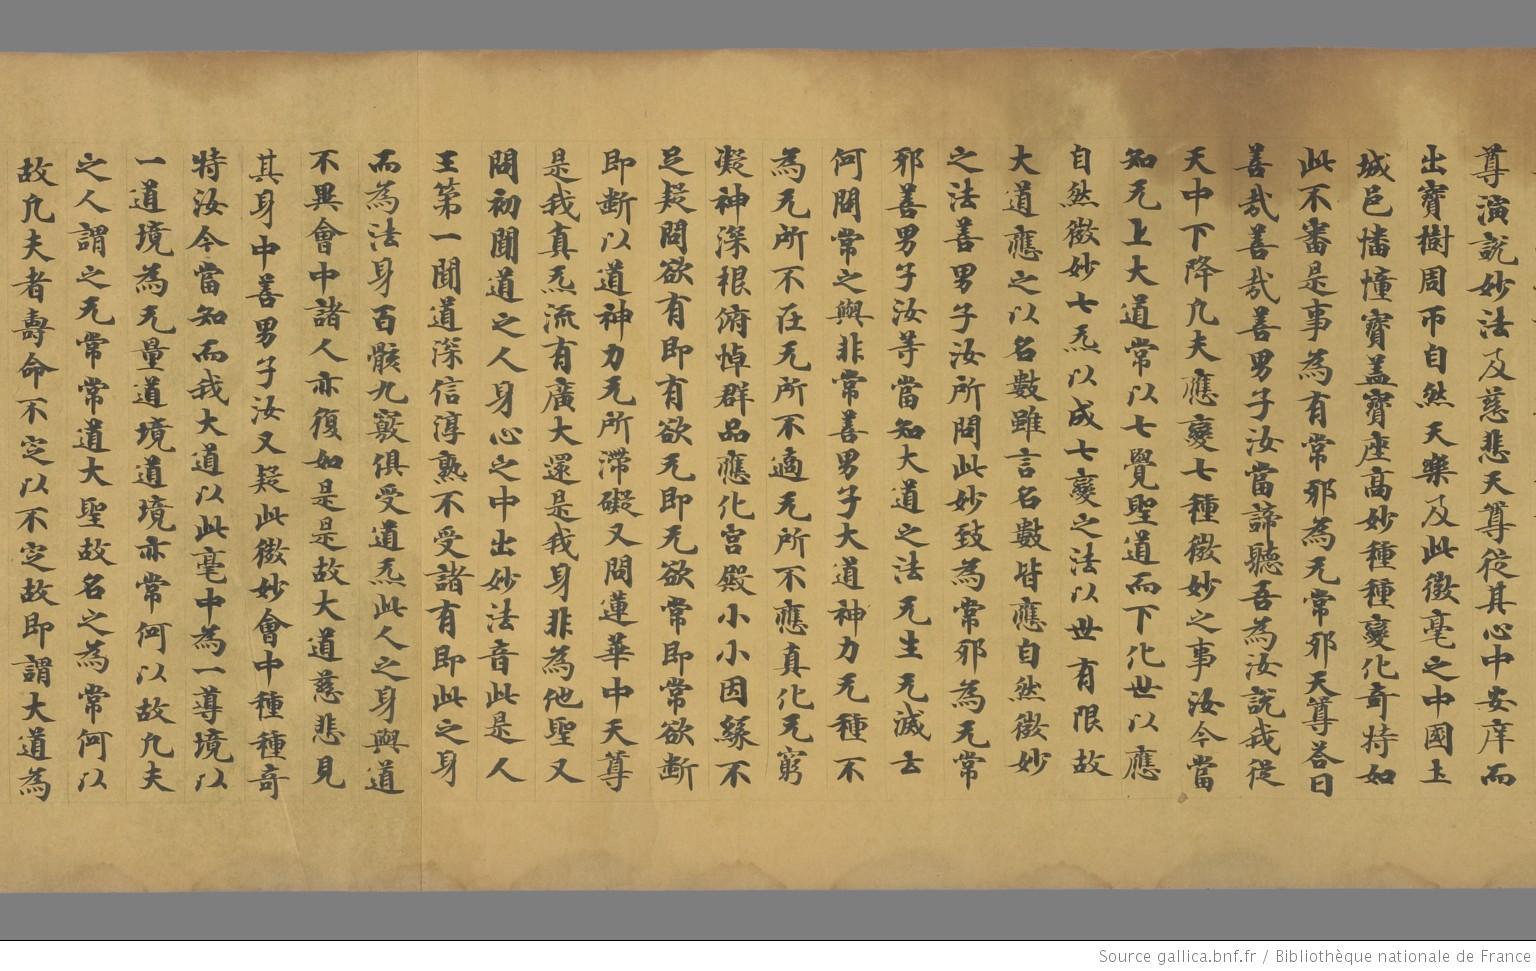 尊演說妙法及慈悲天尊從其心中安庠而
出寶樹周帀自然天樂及此微毫之中國土
城邑幡憧寶盖寶座高妙種種變化奇特如
此不審是事為有常邪為无常邪天尊荅曰
善哉善哉善男子汝當諦聽吾為汝說我從
天中下降凢夫應變七種微妙之事汝今當
知无上大道常以七覺聖道而下化世以應
自然微妙七炁以成七變之法以世有限故
大道應之以名數雖言名數皆應自然微妙
之法善男子汝所問此妙致為常邪為无常
邪善男子汝等當知大道之法无生无滅云
何問常之與非常善男子大道神力无種不
為无所不在无所不適无所不應真化无窮
凝神深根俯悼群品應化宮殿小小因緣不
足疑問欲有即有欲无即无欲常即常欲斷
即斷以道神力无所滯礙又問蓮華中天尊
是我真炁流有廣大還是我身非為他聖又
問初聞道之人身心之中出妙法音此是人
王第一聞道深信淳熟不受諸有即此之身
而為法身百骸九竅俱受道炁此人之身與道
不異會中諸人亦復如是是故大道慈悲見
其身中善男子汝又疑此微妙會中種種奇
特汝今當知而我大道以此毫中為一導境以
一道境為无量道境道境亦常何以故凢夫
之人謂之无常常道大聖故名之為常何以
故凢夫者壽命不定以不定故即謂大道為
Source gallica.bnf.fr / Bibliothèque nationale de France